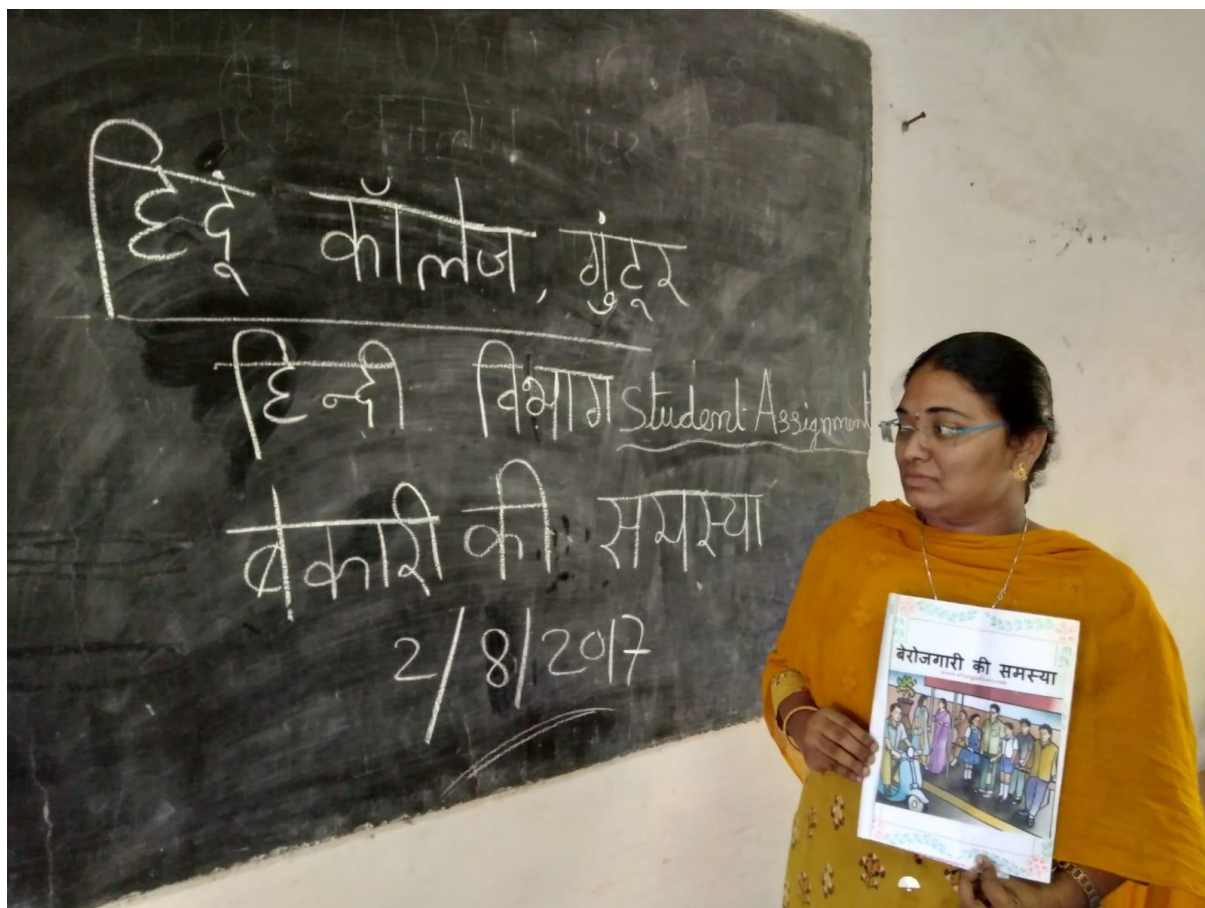 हिंदू कॉलेज, गुंटूर
हिन्दी विभाग Student Assignment
बेकारी की समस्या
2/8/2017
बेरोजगारी की समस्या